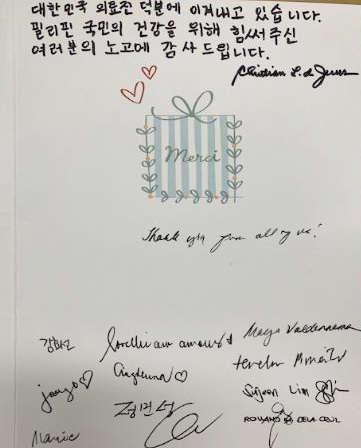 대한민국 의료진 덕분에 이겨내고 있습니다.
필리핀 국민의 건강을 위해 힘써주신
여러분의 노고에 감사드립니다.
Christian L. de Jesus
Merci
Thank you from all of us!
강화선
Maya Valderrama
Angeluna
정민성
Sijoon Lim
ROLAND DELA CRUZ
Marie